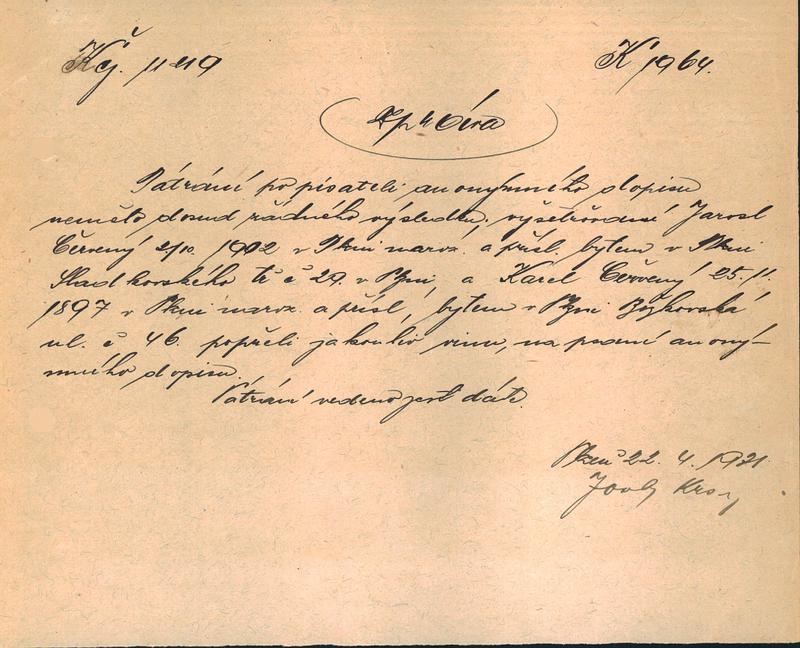 Kčj. 11419 K 1964.
Zpráva
Pátrání po pisateli anonymného dopisu
nemělo dosud řádného výsledku, vyšetřování Jarosl
Červený 2/10. 1902 v Plzni naroz. a přísl. bytem v Plzni
Sladkovského tř č 29. v Plzni, a Karel Červený 25.11.
1897 v Plzni naroz. a přísl, bytem v Plzni Božkovská
ul. č 46. popřeli jakouliv vinu, na psaní anony-
mného dopisu.
Pátrání vedeno jest dále.
Plzeň 22. 4. 1921.